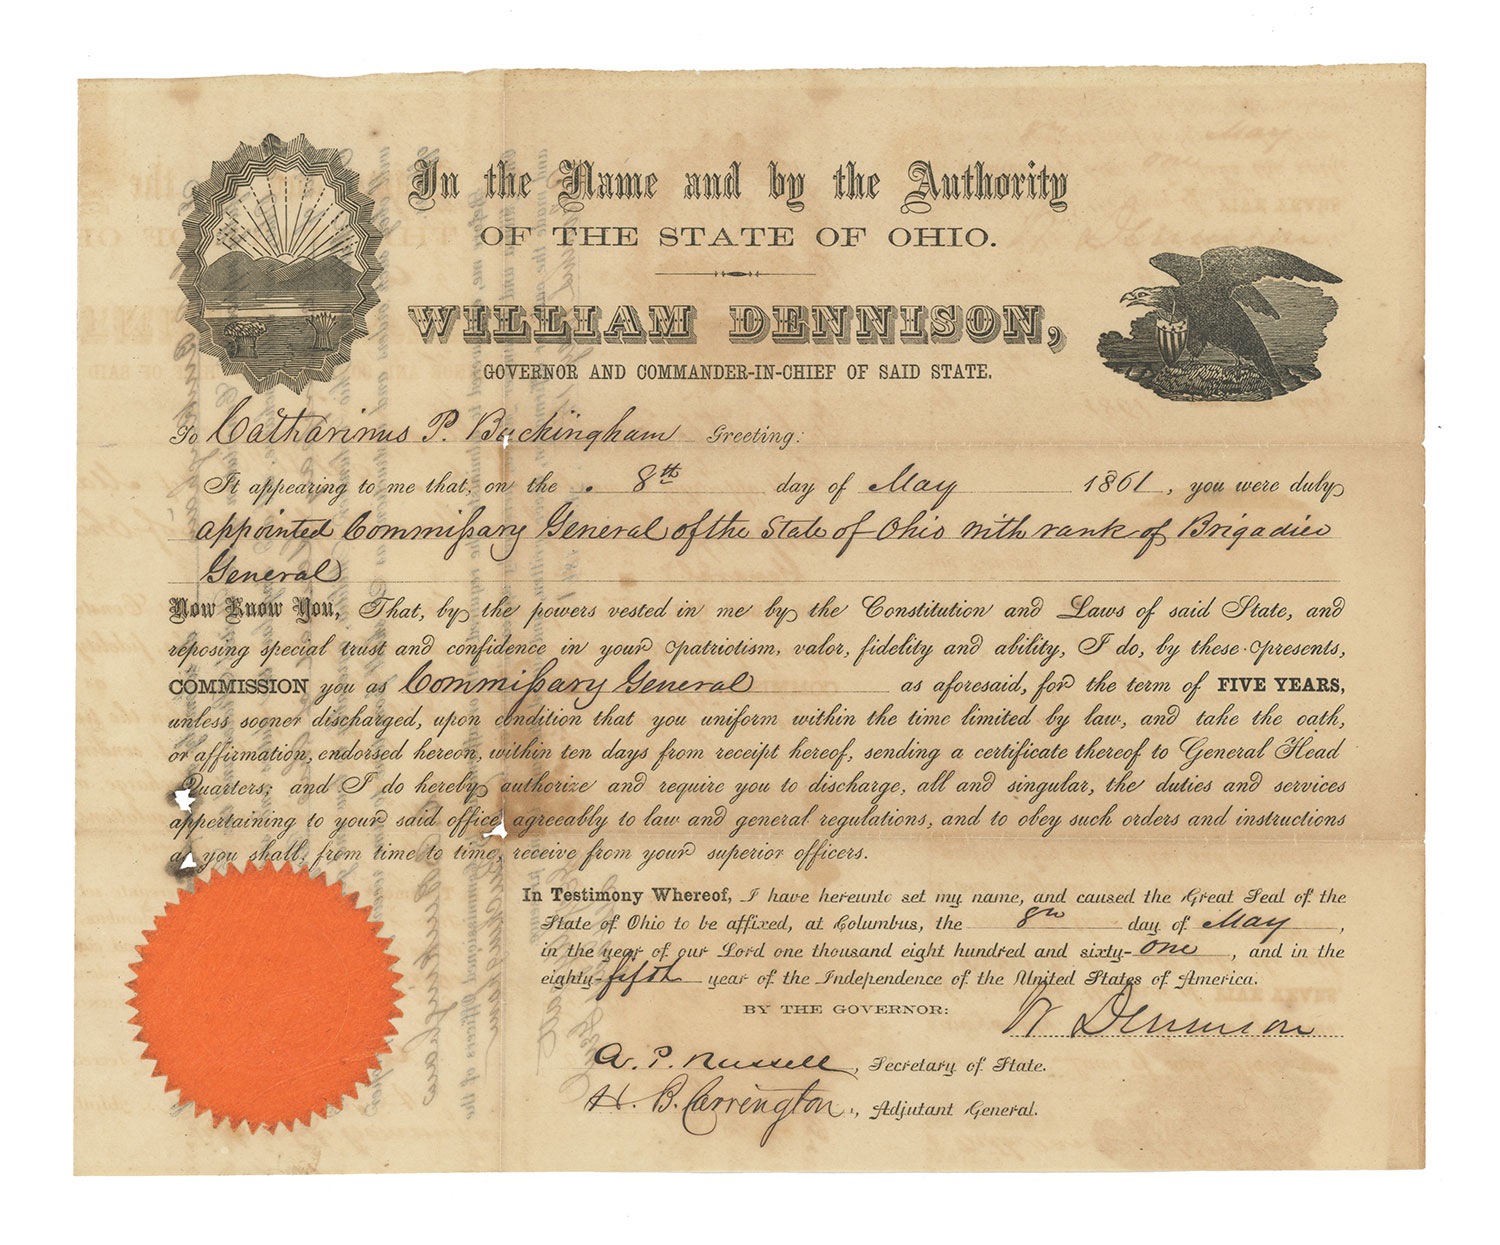 In the Name and by the Authority
OF THE STATE OF OHIO.
WILLIAM DENNISON,
GOVERNOR AND COMMANDER-IN-CHIEF OF SAID STATE.
To Catharinus P. Buckingham Greeting:
It appearing to me that, on the 8th day of May 1861, you were duly
appointed Commissary General of the State of Ohio with rank of Brigadier
General
Now Know You, That, by the powers vested in me by the Constitution and Laws of said State, and
reposing special trust and confidence in your patriotism, valor, fidelity and ability, I do, by these presents,
COMMISSION you as Commissary General as aforesaid, for the term of FIVE YEARS,
unless sooner discharged, upon condition that you uniform within the time limited by law, and take the oath,
or affirmation, endorsed hereon, within ten days from receipt hereof, sending a certificate thereof to General Head
Quarters; and I do hereby authorize and require you to discharge, all and singular, the duties and services
appertaining to your said office agreeably to law and general regulations, and to obey such orders and instructions
as you shall, from time to time, receive from your superior officers.
In Testimony Whereof, I have hereunto set my name, and caused the Great Seal of the
State of Ohio to be affixed, at Columbus, the 8th day of May,
in the year of our Lord one thousand eight hundred and sixty-one, and in the
eighty-fifth year of the Independence of the United States of America.
BY THE GOVERNOR:
W Dennison
A. P. Russell, Secretary of State.
H. B. Carrington, Adjutant General.